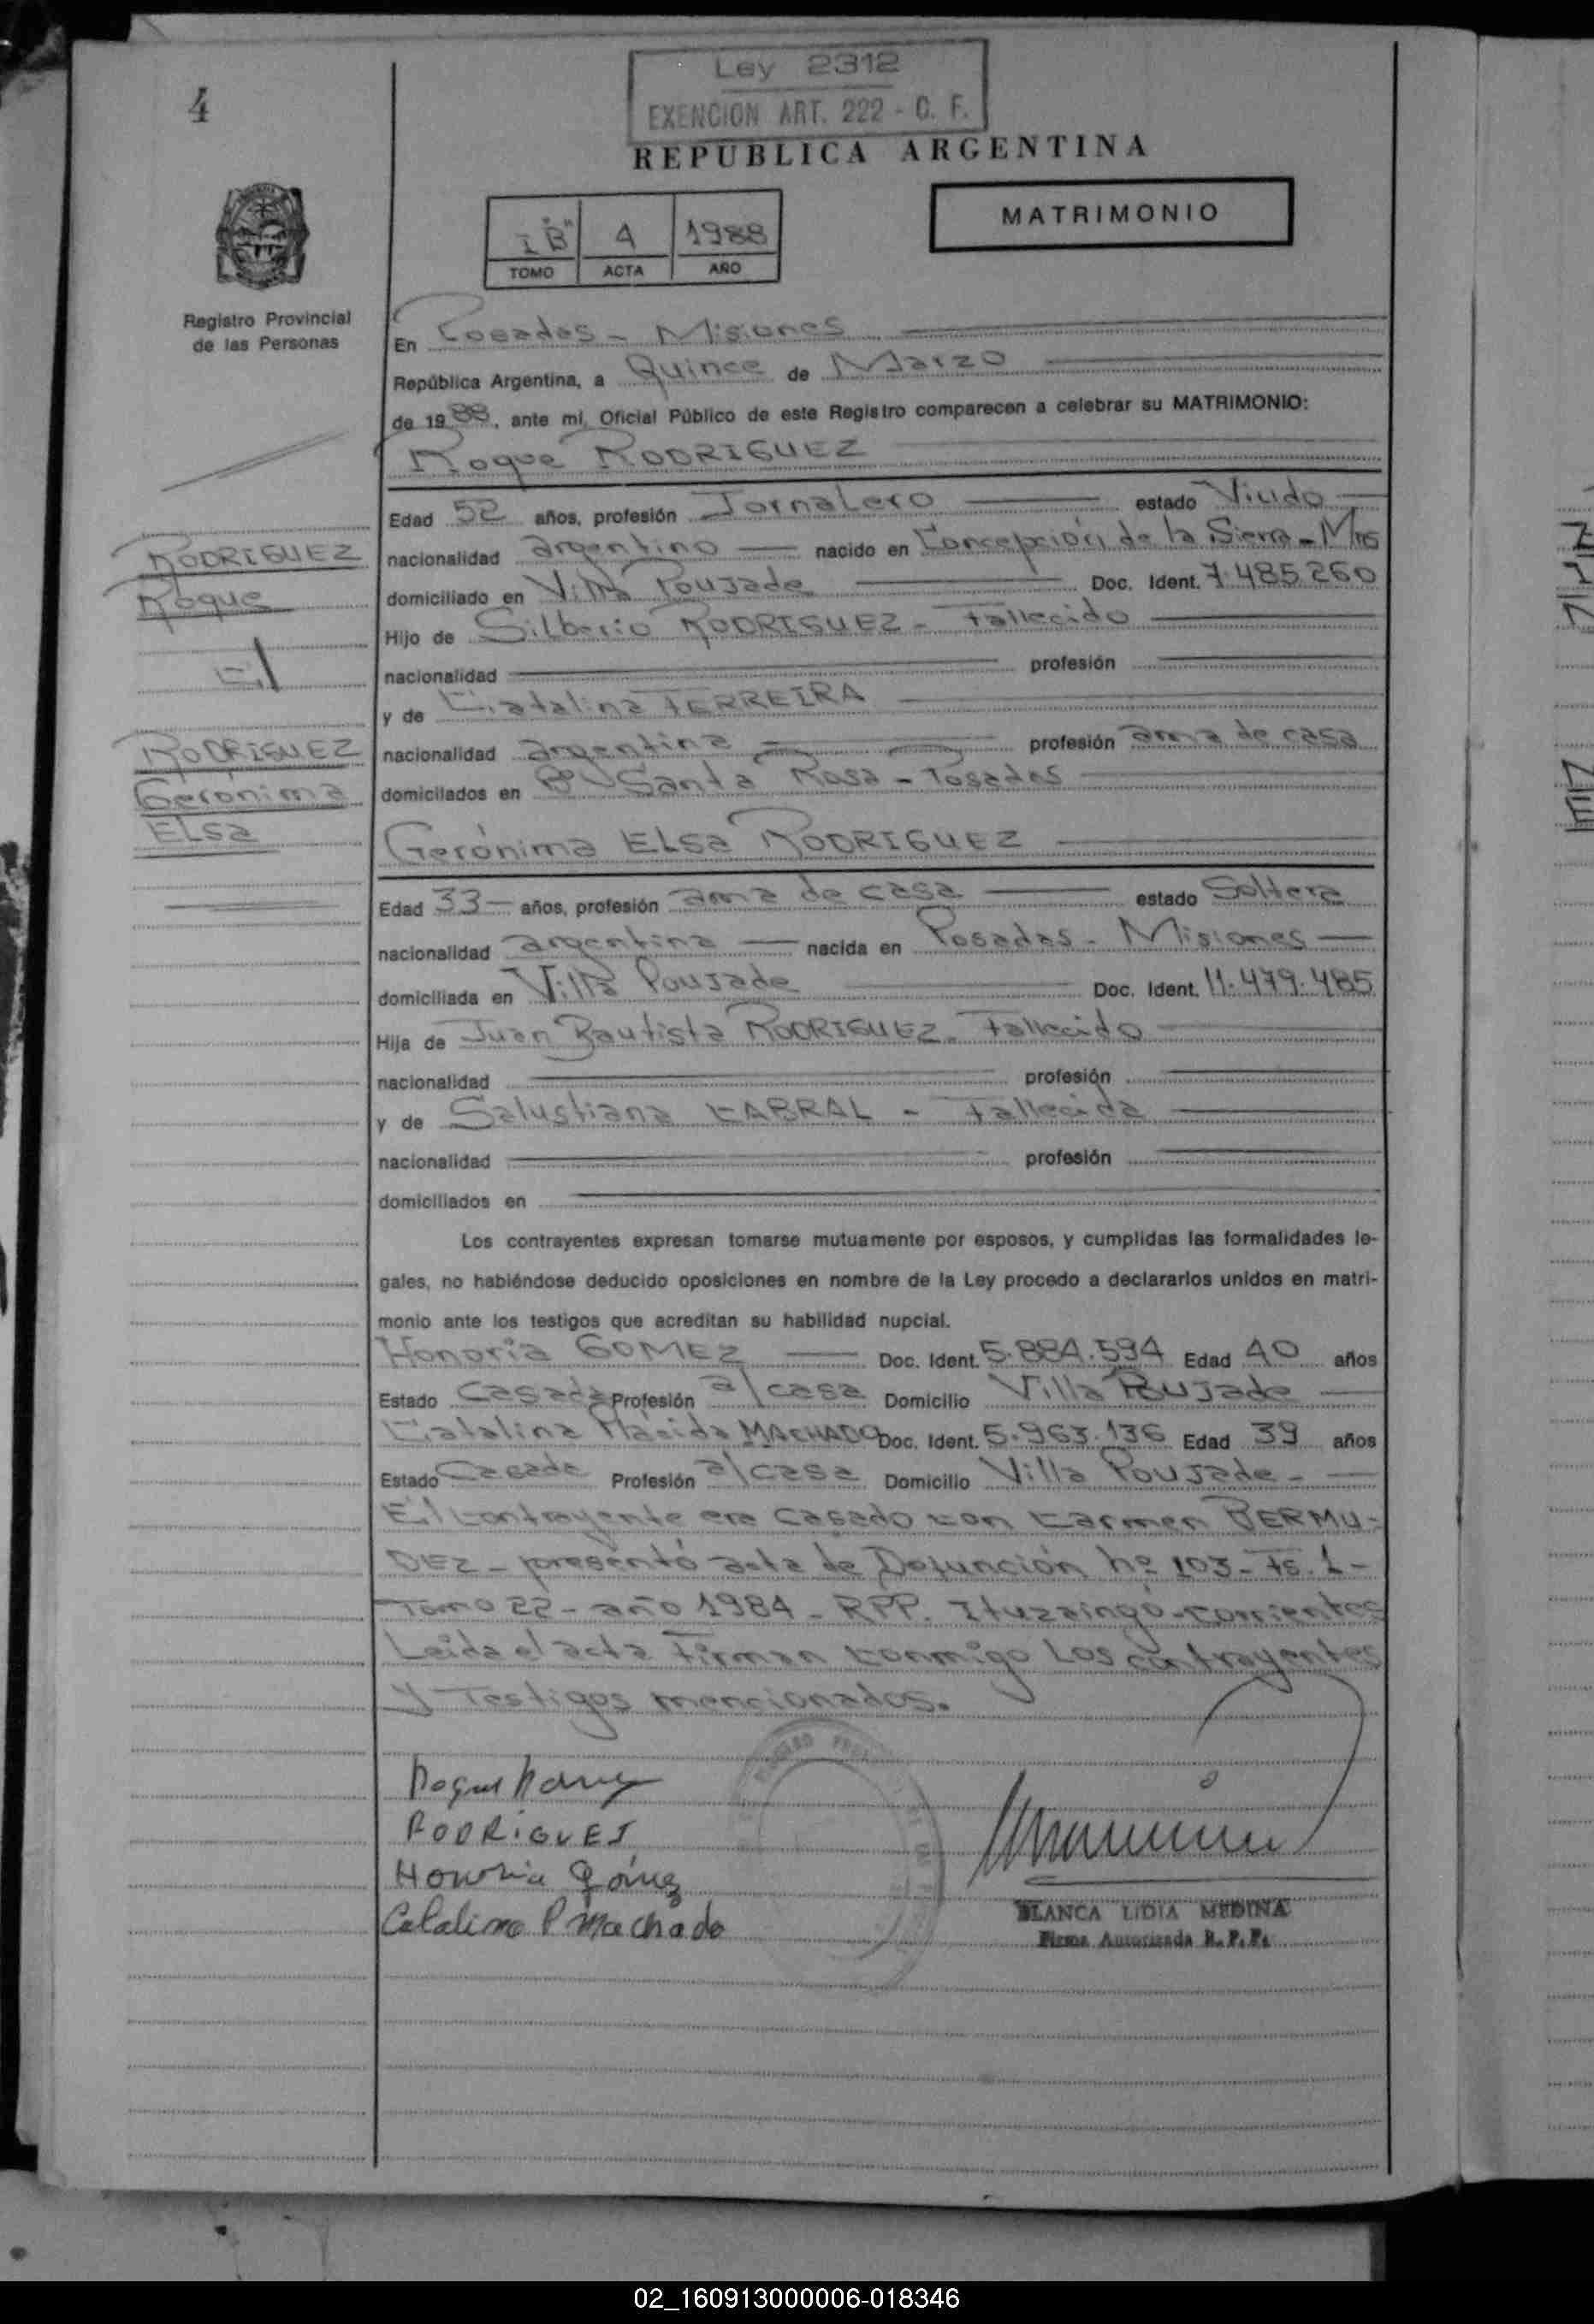 4
Ley 2312
EXENCION ART. 222 - C. F.
REPUBLICA ARGENTINA
MATRIMONIO
I "B" 4 1988
TOMO ACTA AÑO
Registro Provincial
de las Personas
En Posadas - Misiones
República Argentina, a Quince de Marzo
de 1988, ante mí, Oficial Público de este Registro comparecen a celebrar su MATRIMONIO:
Roque RODRIGUEZ
Edad 52 años, profesión Jornalero estado Viudo
nacionalidad argentino nacido en Concepción de la Sierra - Mnes
domiciliado en Villa Poujade Doc. Ident. 7.485.260
Hijo de Silberio RODRIGUEZ - Fallecido
nacionalidad profesión
y de Catalina FERREIRA
nacionalidad argentina profesión ama de casa
domiciliados en Bº Santa Rosa - Posadas
RODRIGUEZ
Roque
RODRIGUEZ
Gerónima
Elsa
Gerónima Elsa RODRIGUEZ
Edad 33 años, profesión ama de casa estado Soltera
nacionalidad argentina nacida en Posadas - Misiones
domiciliada en Villa Poujade Doc. Ident. 11.479.485
Hija de Juan Bautista RODRIGUEZ - Fallecido
nacionalidad profesión
y de Salustiana CABRAL - Fallecida
nacionalidad profesión
domiciliados en
Los contrayentes expresan tomarse mutuamente por esposos, y cumplidas las formalidades le-
gales, no habiéndose deducido oposiciones en nombre de la Ley procedo a declararlos unidos en matri-
monio ante los testigos que acreditan su habilidad nupcial.
Honoria GOMEZ Doc. Ident. 5.884.594 Edad 40 años
Estado Casada Profesión a/casa Domicilio Villa Poujade
Catalina Plácida MACHADO Doc. Ident. 5.963.136 Edad 39 años
Estado Casada Profesión a/casa Domicilio Villa Poujade -
El contrayente era casado con Carmen BERMU-
DEZ - presentó acta de Defunción nº 103 - Fs. 1 -
Tomo 22 - año 1984 - RPP. Ituzaingó - Corrientes
Leida el acta Firman conmigo los contrayentes
y Testigos mencionados.
RODRIGUEZ
Honoria Gómez
Catalina P Machado
BLANCA LIDIA MEDINA
Firma Autorizada R. P. P.
02_160913000006-018346